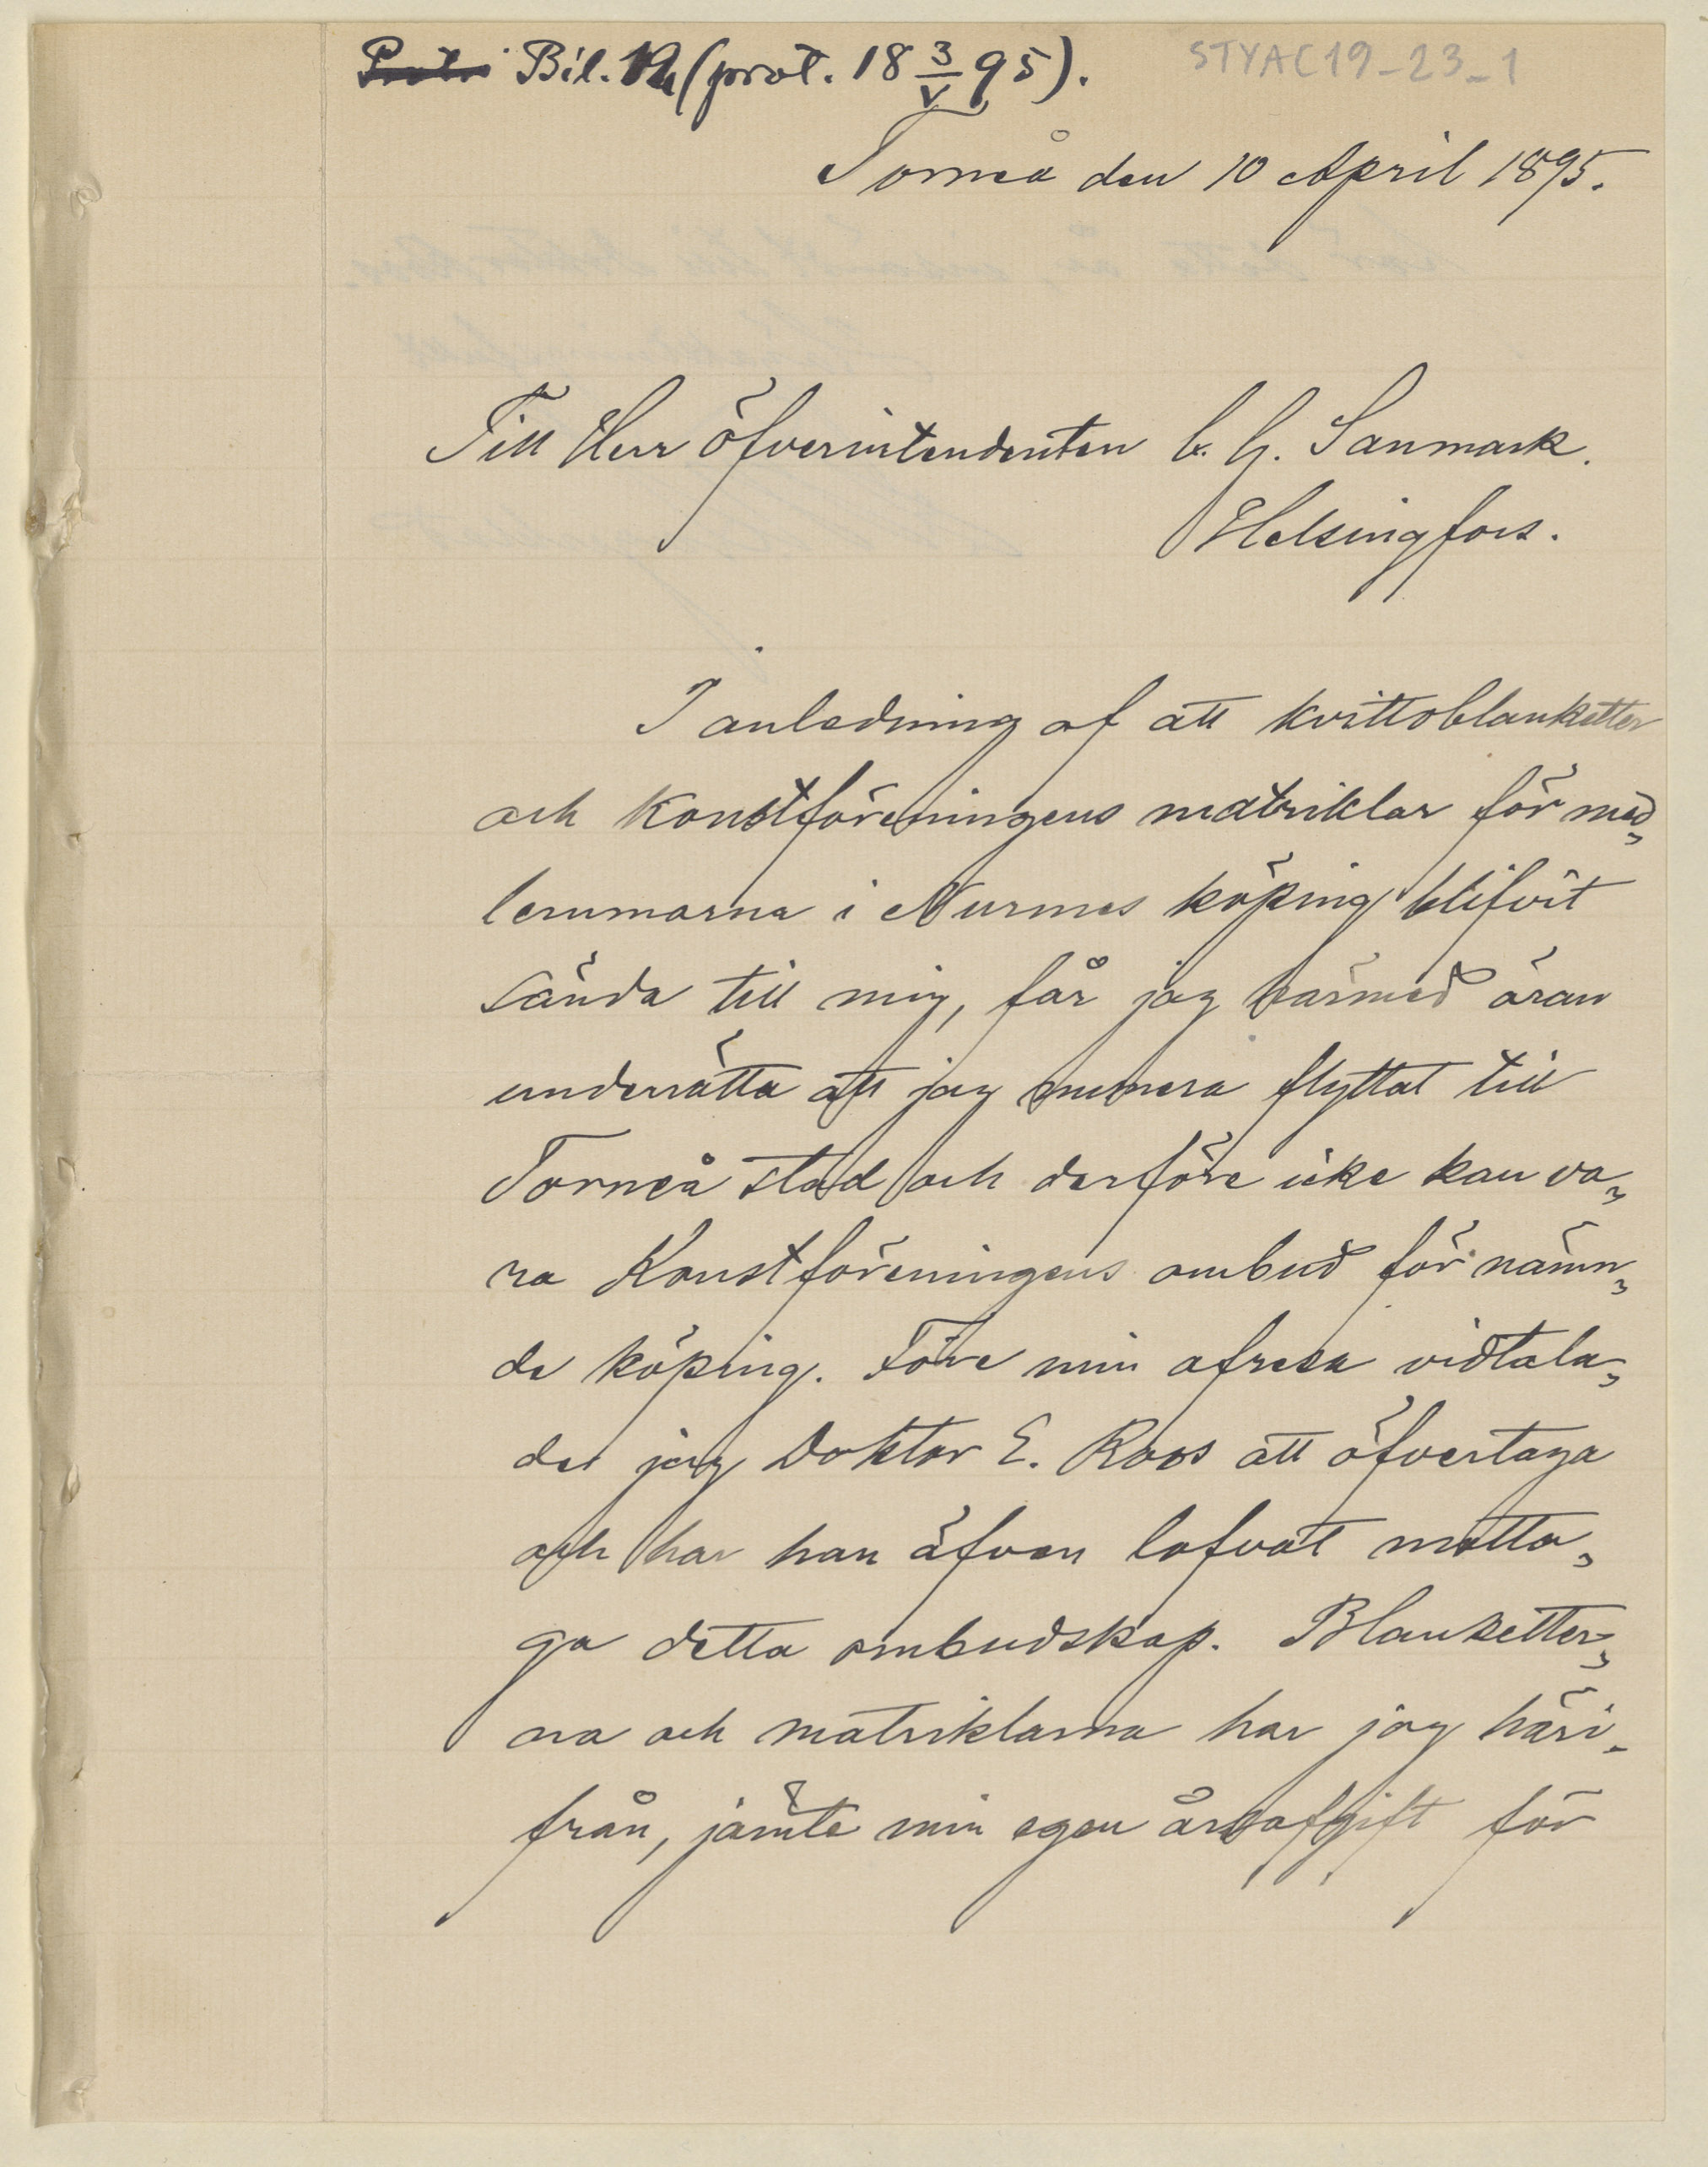 Bil. (prot. 18 3/V 95).
STYAC19_23_1
Torneå den 10 April 1895.
Till Herr Öfverintendenten C. G. Sanmark.
Helsingfors.
I anledning af att kvittoblanketter
och Konstföreningens matriklar för med„
lemmarna i Nurmes köping blifvit
sända till mig, får jag härmed äran
underrätta att jag numera flyttat till
Torneå stad och derföre icke kan va„
ra Konstföreningens ombud för nämn„
de köping. Före min afresa vidtala„
de jag Doktor E. Roos att öfvertaga
och har han äfven lofvat motta„
ga detta ombudskap. Blanketter„
na och matriklarna har jag häri„
från, jämte min egen årsafgift för